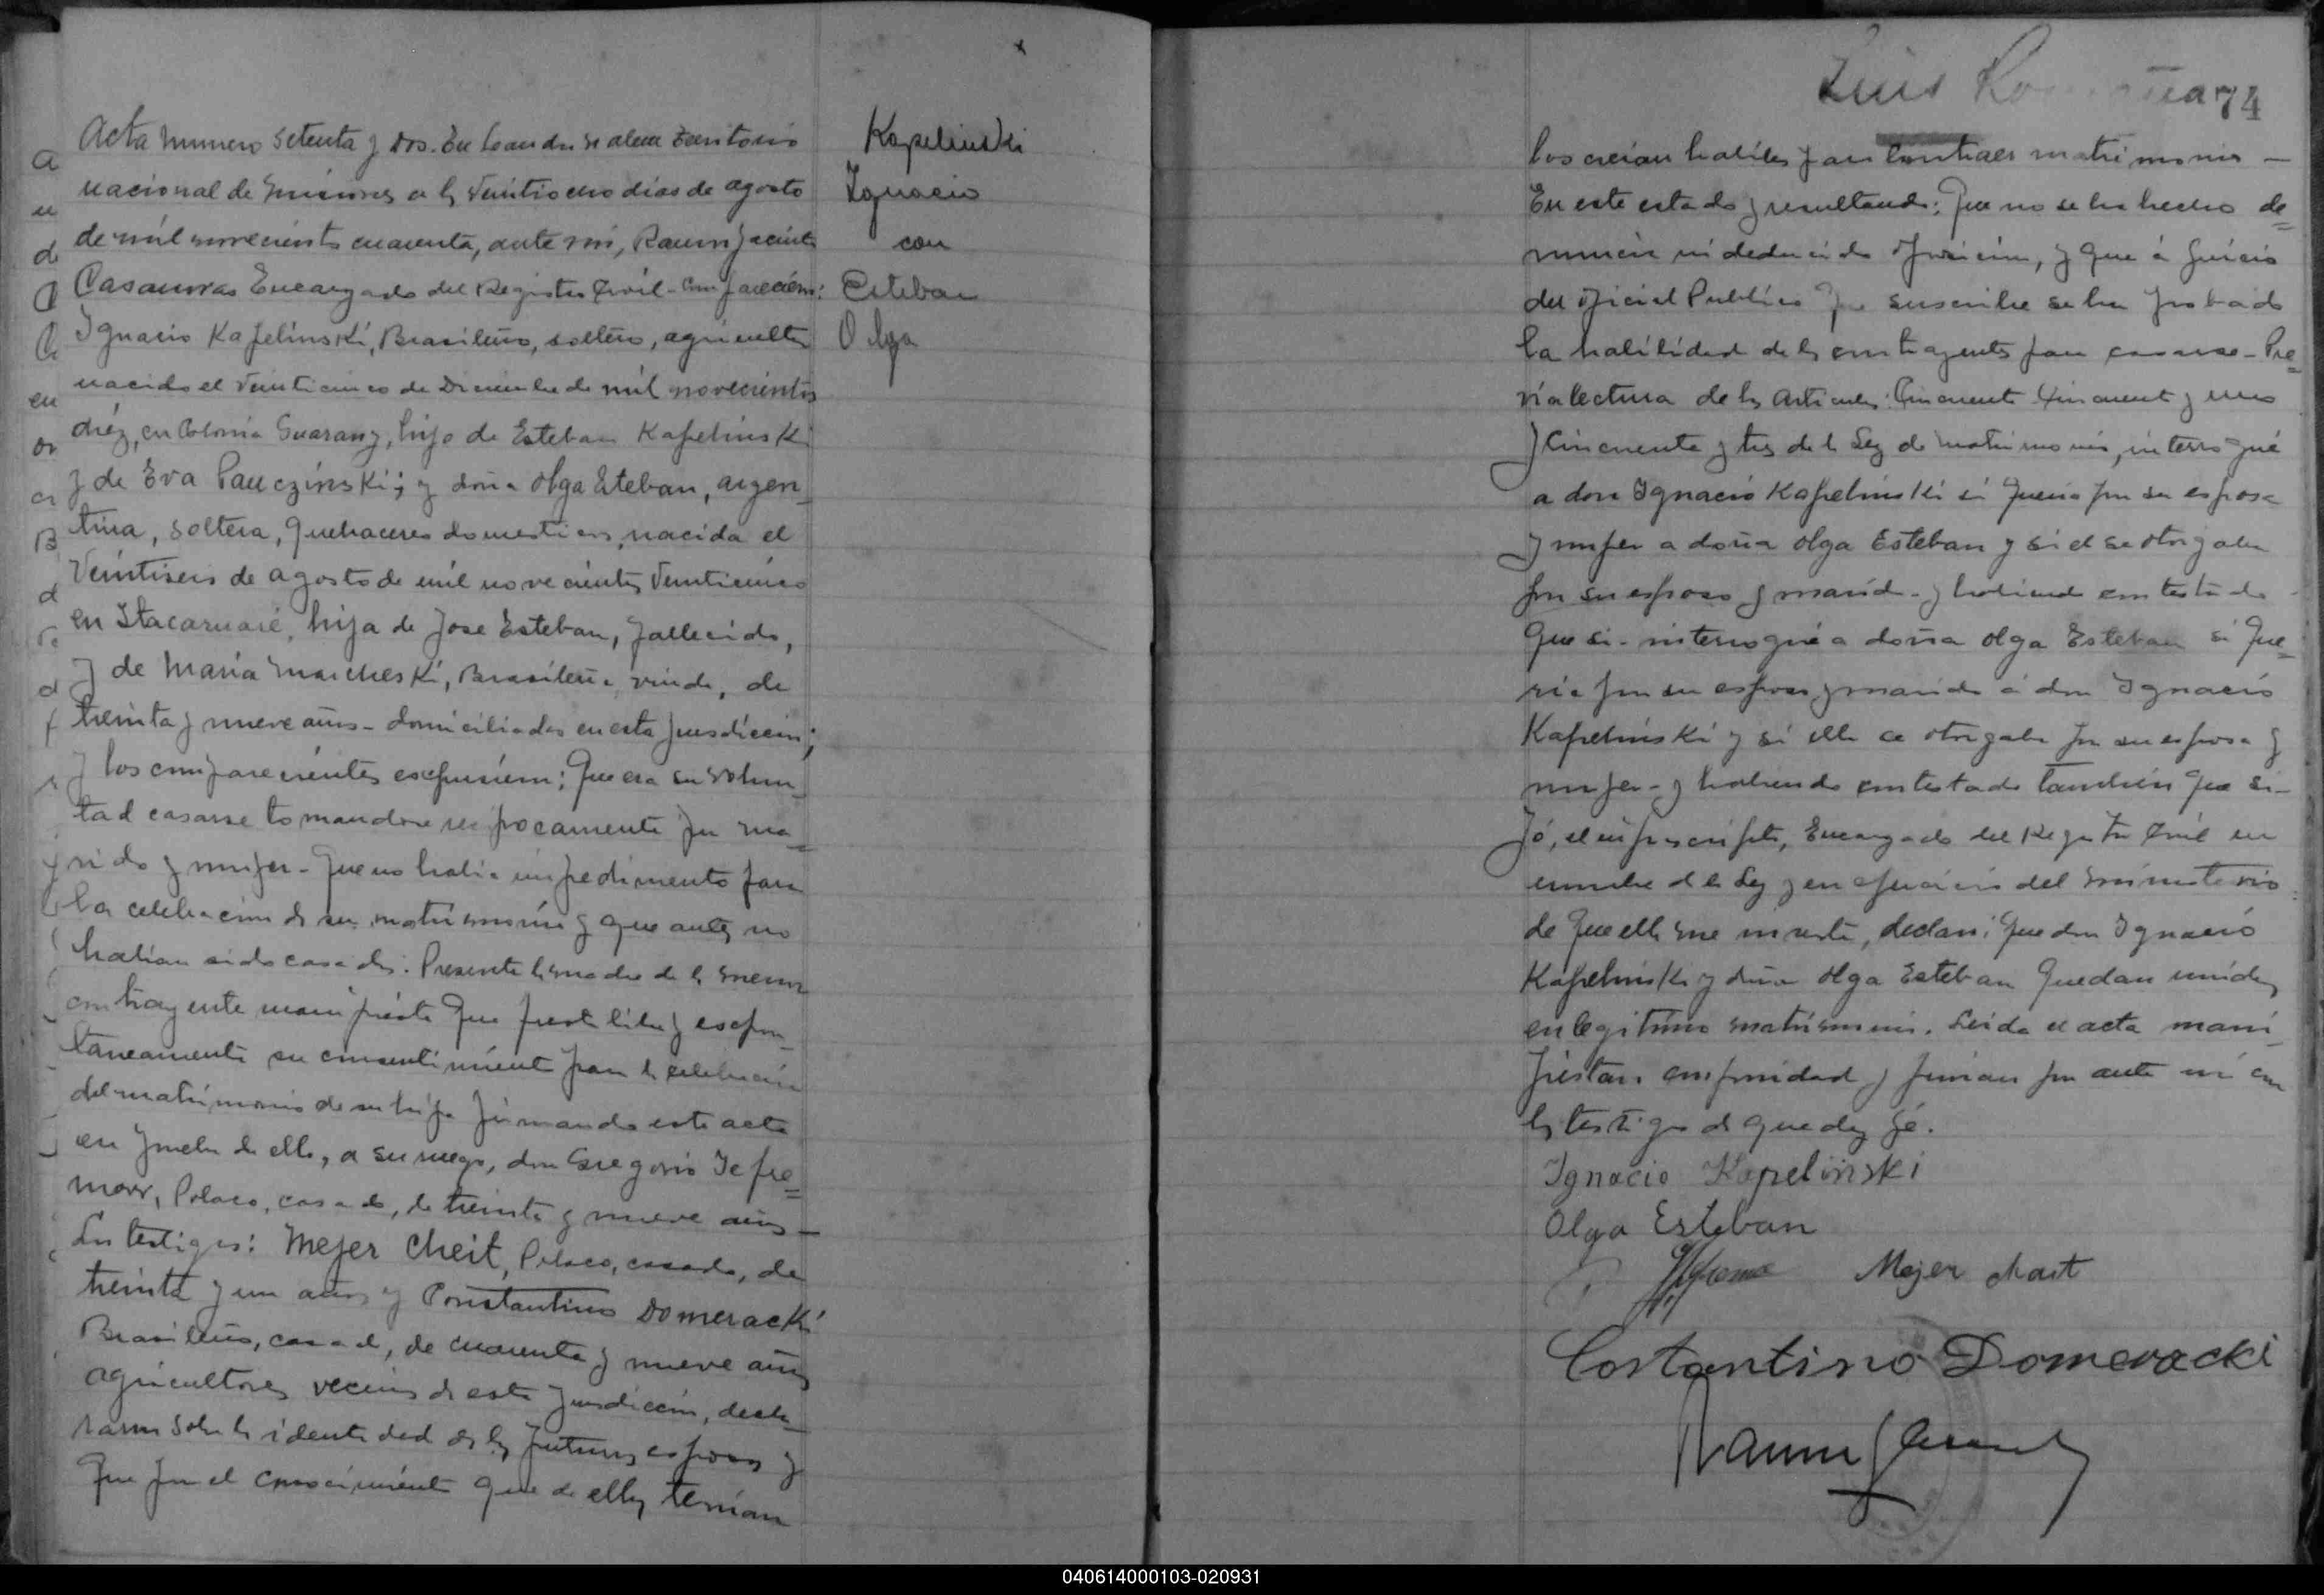 Acta numero setenta y dos. En Leandro N alem territorio
nacional de misiones a ls veintiocho dias de agosto
de mil novecientos cuarenta, ante mi, Ramon Jacinto
Casauvras Encargado del Registro Civil - Comparecieron:
Ignacio Kapelinski, Brasileño, soltero, agricultor
nacido el veinticinco de Diciembre de mil novecientos
diéz, en Colonia Guarany, hijo de Esteban Kapelinski
y de Eva Pauczinski; y doña Olga Esteban, argen-
tina, soltera, quehaceres domesticos, nacida el
Veintiseis de agosto de mil novecientos veinticinco
en Itacaruaré, hija de Jose Esteban, fallecido,
y de Maria Marcheski, Brasileña, viuda, de
treinta y nueve años - domiciliados en esta jurisdiccion;
y los comparecientes expusieron: Que era su volun-
tad casarse tomandose reciprocamente por ma-
rido y mujer - Que no habia impedimento para
la celebracion de su matrimonio y que antes no
habian sido casados. Presente la madre de la menor
contrayente manifiesta que presta libre y espon-
taneamente su consentimiento para la celebracion
del matrimonio de su hija firmando este acta
en prueba de ello, a su ruego, don Gregorio Jefre-
mow, Polaco, casado, de treinta y nueve años -
Los testigos: Mejer Cheit, Polaco, casado, de
treinta y un años y Constantino Domeracki
Brasileño, casado, de cuarenta y nueve años
agricultores vecinos de esta jurisdiccion, decla-
raron sobre la identidad de los futuros esposos y
que por el conocimiento que de ellos tenian
Kapelinski
Ignacio
con
Esteban
Olga
Luis
74
los creian habiles para contraer matrimonio -
En este estado y resultando: Que no se ha hecho de-
nuncia ni deducido oposicion, y que á juicio
del oficial Publico que suscribe se ha probado
la habilidad de ls contrayentes para casarse - Pre-
via lectura de ls Articulos: Cincuenta Cincuenta y uno
y Cincuenta y tres de la Ley de matrimonio, interrogué
a don Ignacio Kapelinski si queria por su esposa
y mujer a doña Olga Esteban y si el se otorgaba
por su esposo y marido - y habiendo contestado
Que si - interrogué a doña Olga Esteban si que-
ria por su esposo y marido á don Ignacio
Kapelinski y si ella se otorgaba por su esposa y
mujer - y habiendo contestado tambien que si -
Yó, el infrascripto, Encargado del Registro Civil en
nombre de la Ley y en ejercicio del ministerio
de que ella me inviste, declaro: Que don Ignacio
Kapelinski y doña Olga Esteban Quedan unidos
en legitimo matrimonio. Leida el acta mani-
fiestan conformidad y firman por ante mi con
ls testigos de que doy fé.
Ignacio Kapelinski
Olga Esteban
Mejer
Costantino Domeracki
Ramon J
040614000103-020931